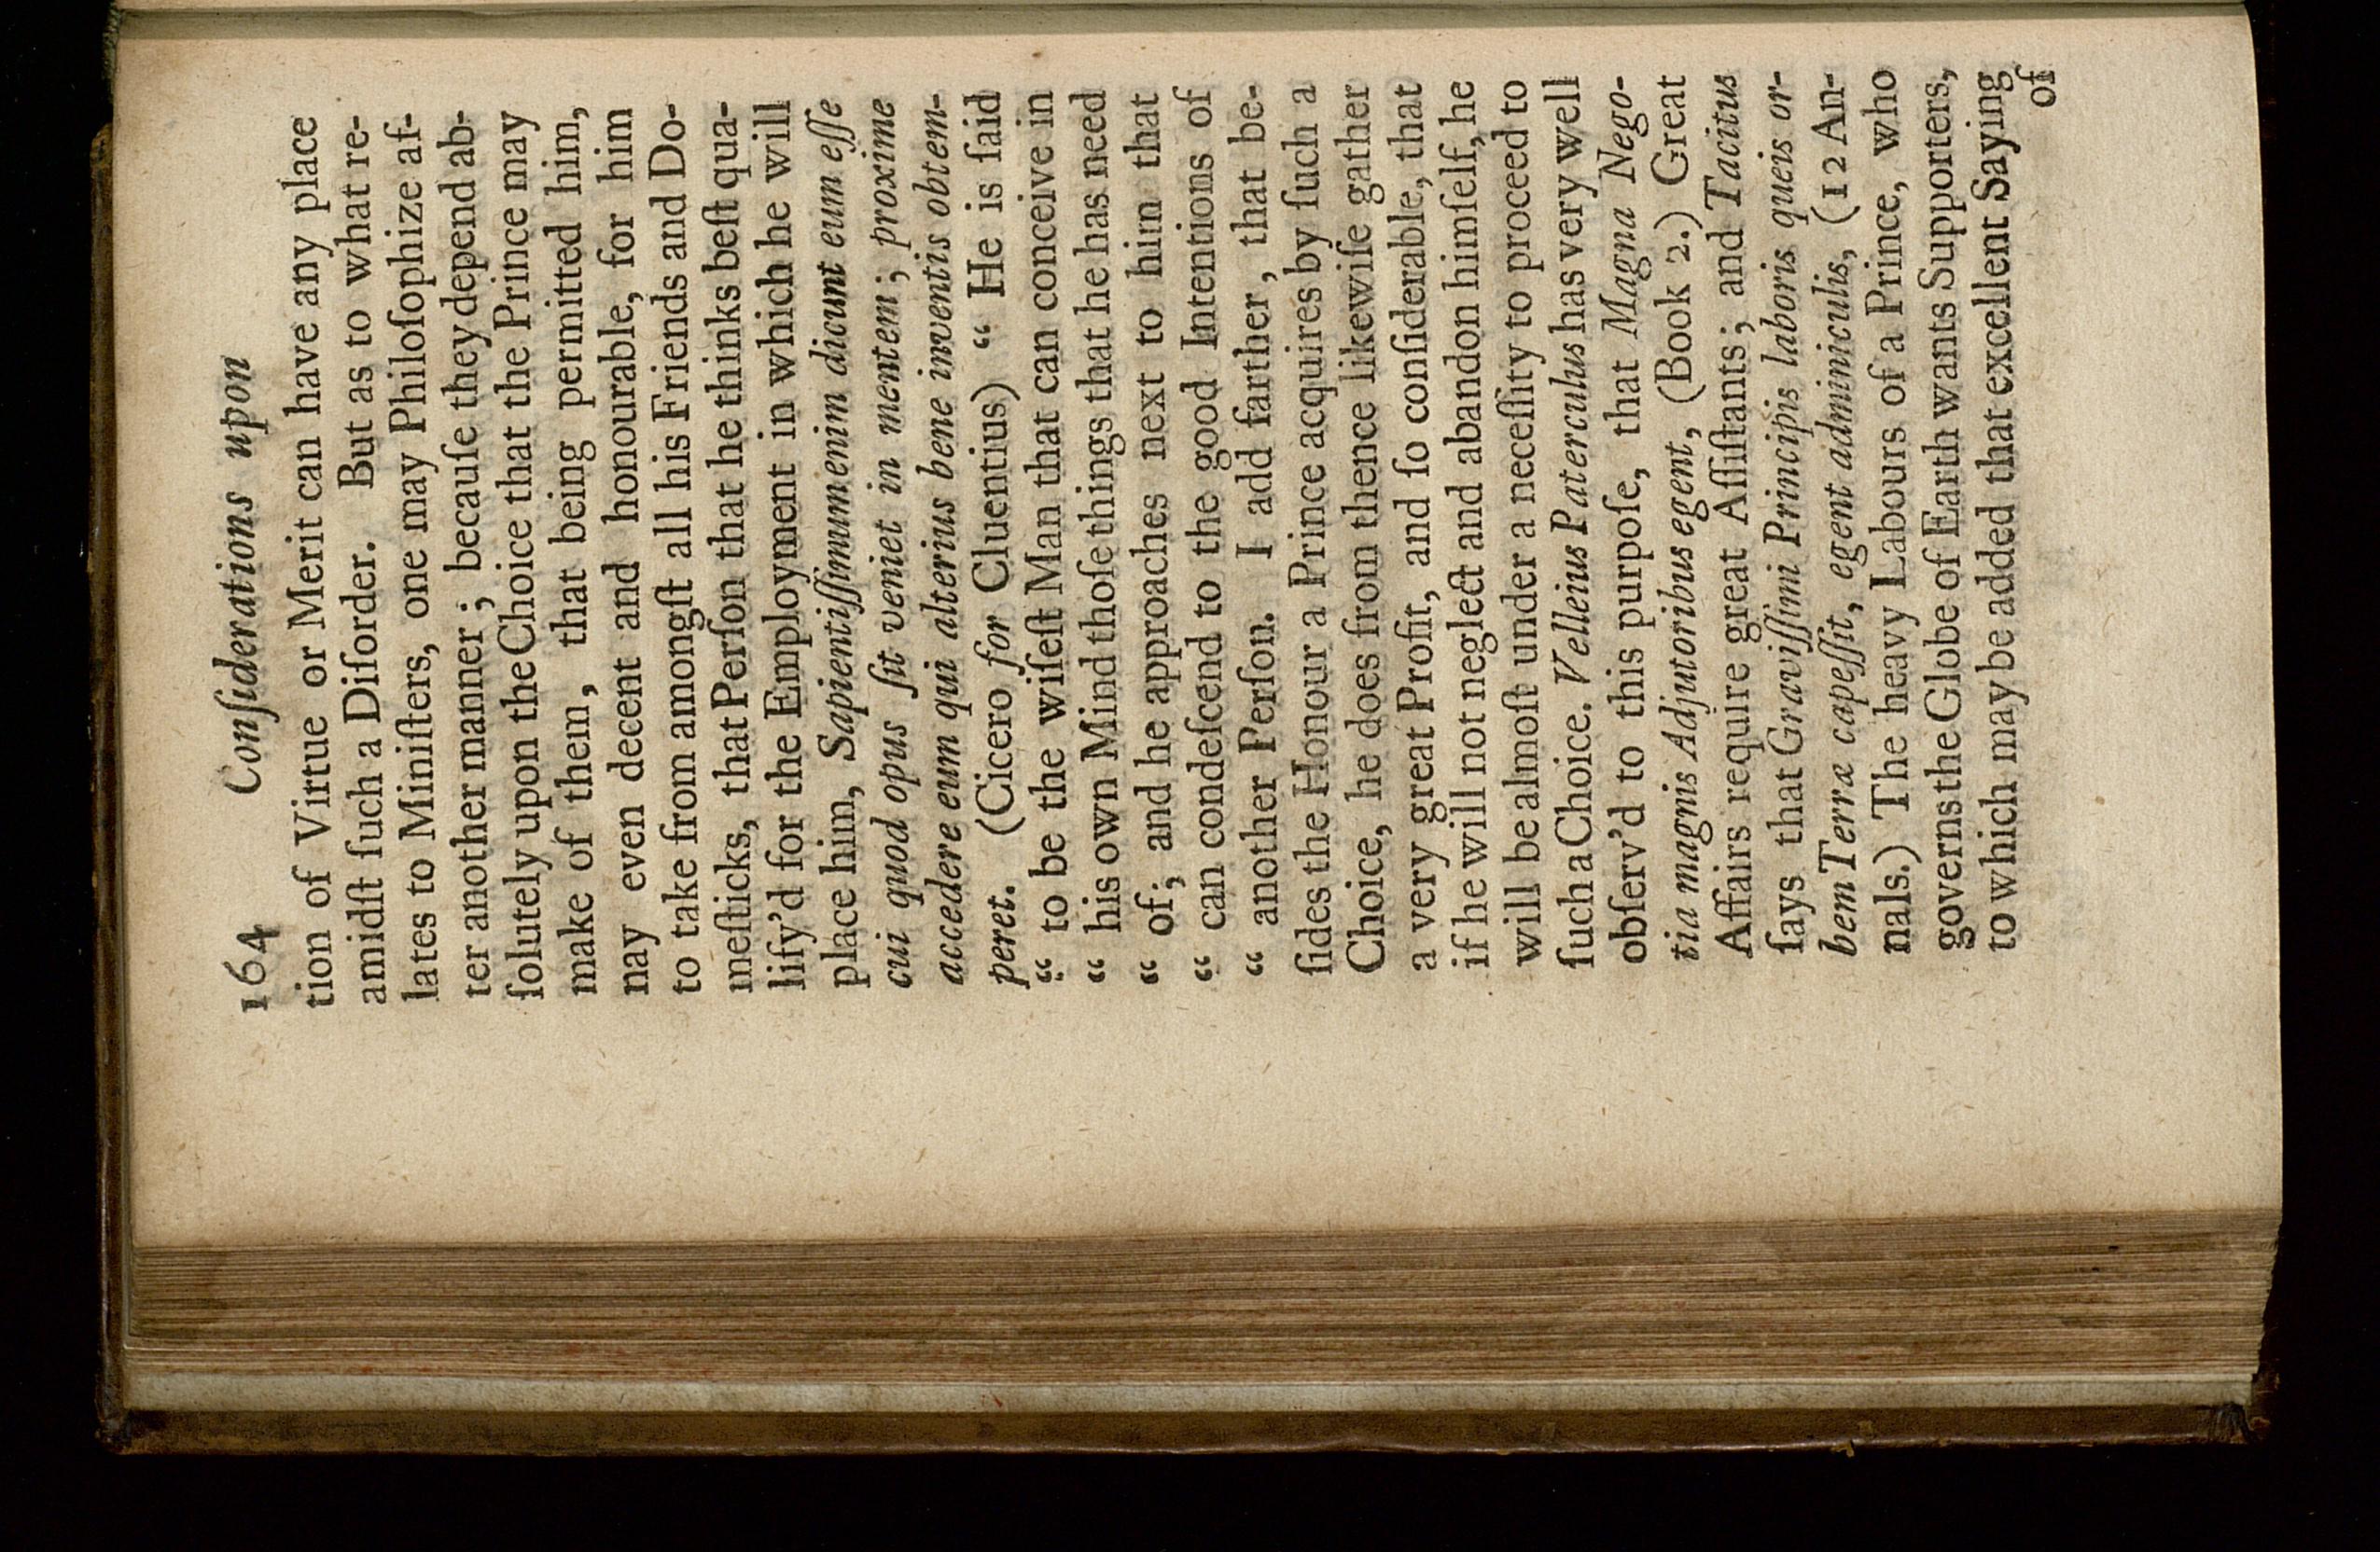 164 Conſiderations upon
tion of Virtue or Merit can have any place
amidſt ſuch a Diſorder. But as to what re-
lates to Miniſters, one may Philoſophize af-
ter another manner; becauſe they depend ab-
ſolutely upon the Choice that the Prince may
make of them, that being permitted him,
may even decent and honourable, for him
to take from amongſt all his Friends and Do-
meſticks, that Perſon that he thinks beſt qua-
lify'd for the Employment in which he will
place him, Sapientiſſimum enim dicunt eum eſſe
cui quod opus ſit veniet in mentem; proxime
accedere eum qui alterius bene inventis obtem-
peret. (Cicero for Cluentius) “ He is ſaid
“ to be the wiſeſt Man that can conceive in
“ his own Mind thoſe things that he has need
“ of; and he approaches next to him that
“ can condeſcend to the good Intentions of
“ another Perſon. I add farther, that be-
ſides the Honour a Prince acquires by ſuch a
Choice, he does from thence likewiſe gather
a very great Profit, and ſo conſiderable, that
if he will not neglect and abandon himſelf, he
will be almoſt under a neceſſity to proceed to
ſuch a Choice. Velleius Paterculus has very well
obſerv'd to this purpoſe, that Magna Nego-
tia magnis Adjutoribus egent, (Book 2.) Great
Affairs require great Aſſiſtants; and Tacitus
ſays that Graviſſimi Principis laboris queis or-
bem Terræ capeſſit, egent adminiculis, (12 An-
nals.) The heavy Labours of a Prince, who
governs the Globe of Earth wants Supporters,
to which may be added that excellent Saying
of